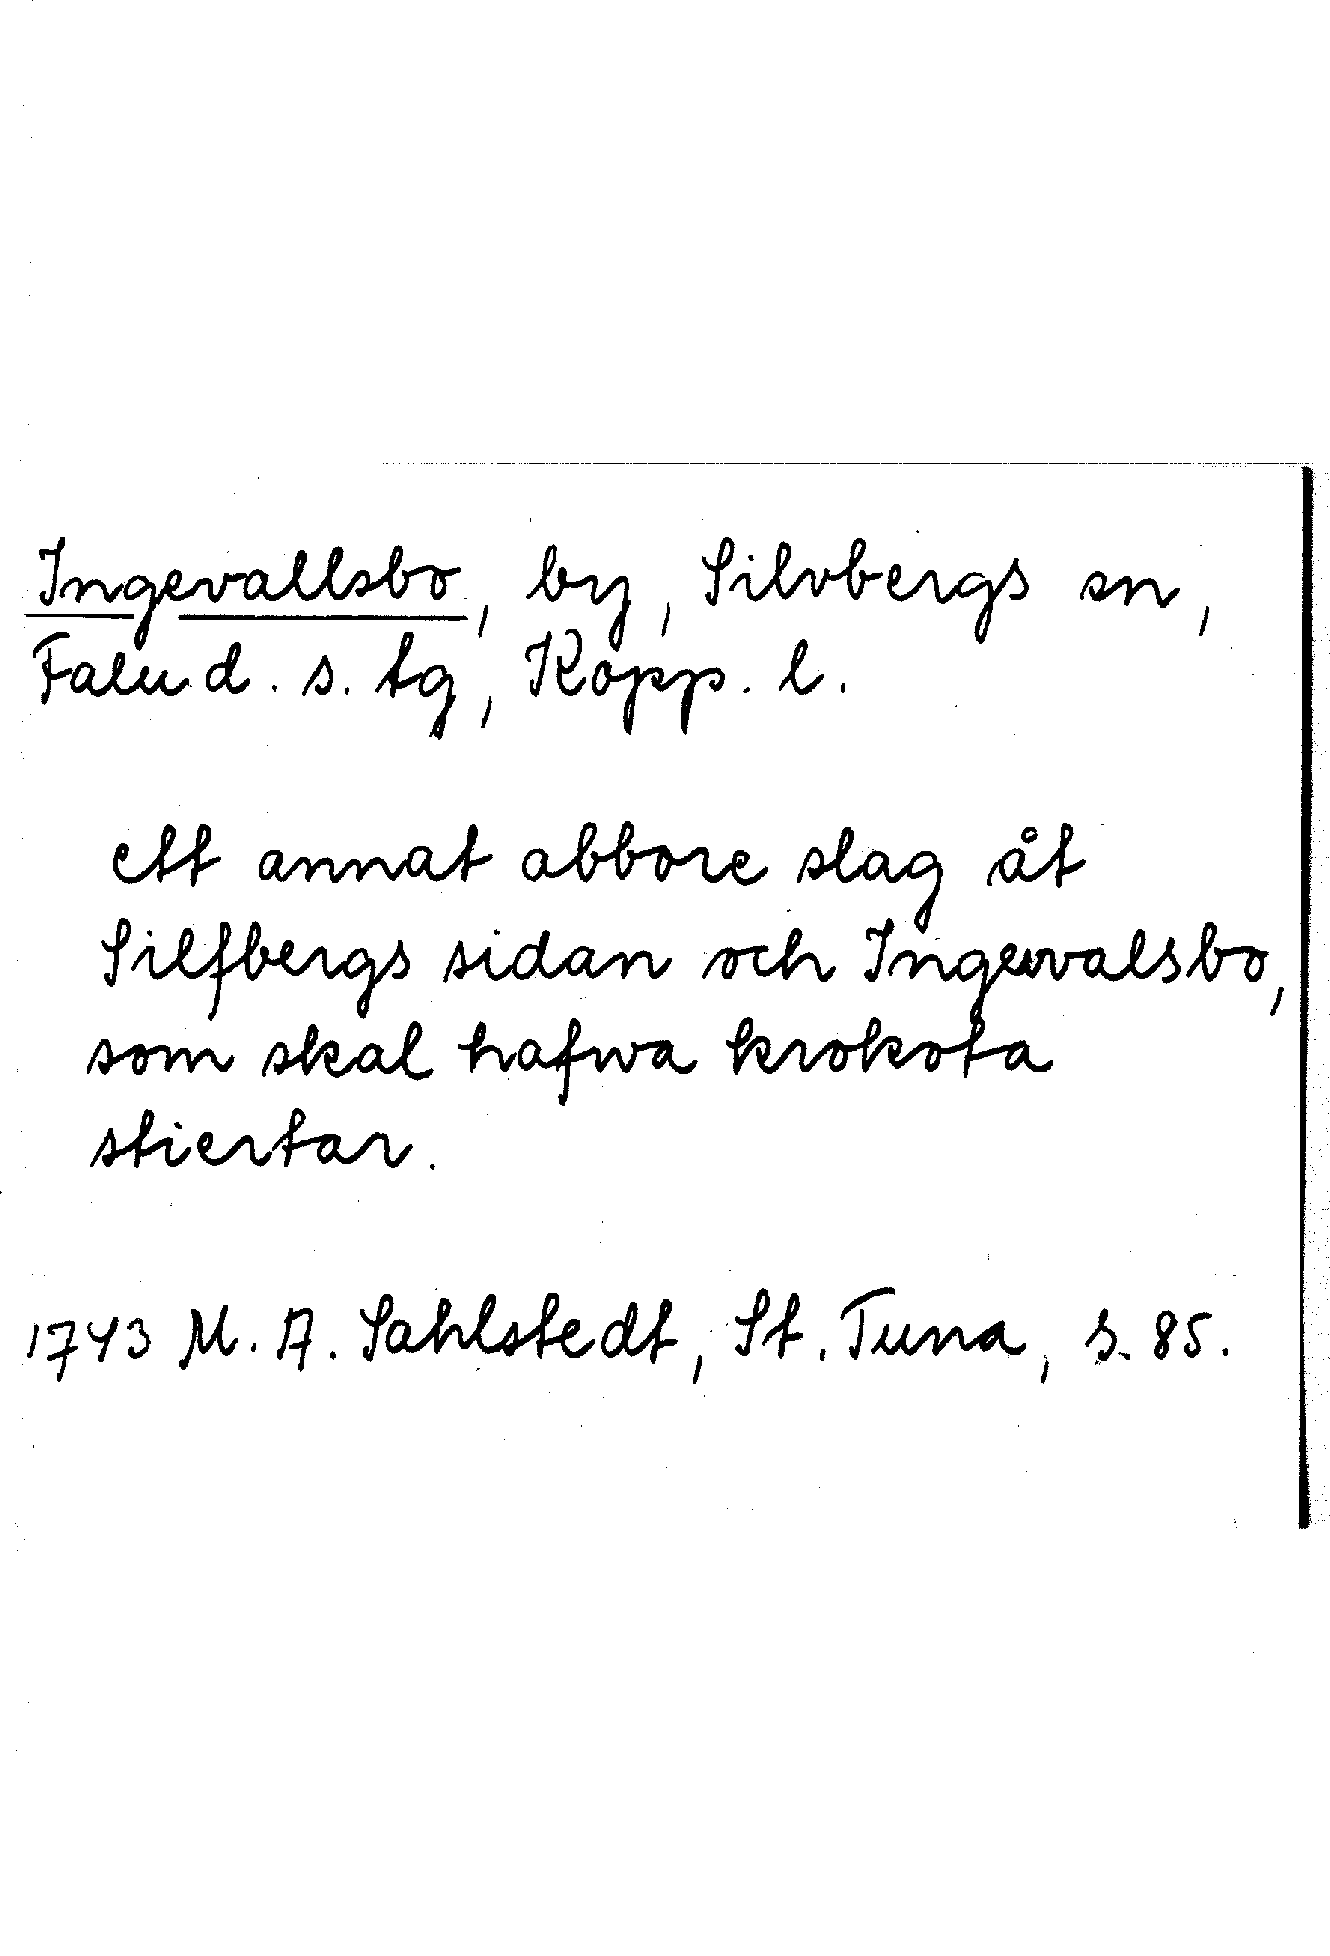 Ingevallsbo, by, Silvbergs sn,
Falu d. s. tg, Kopp. l.
ett annat abbore slag åt
Silfbergs sidan och Ingewalsbo,
som skal hafwa krokota
stiertar.
1743 M. A. Sahlstedt, St. Tuna, s. 85.